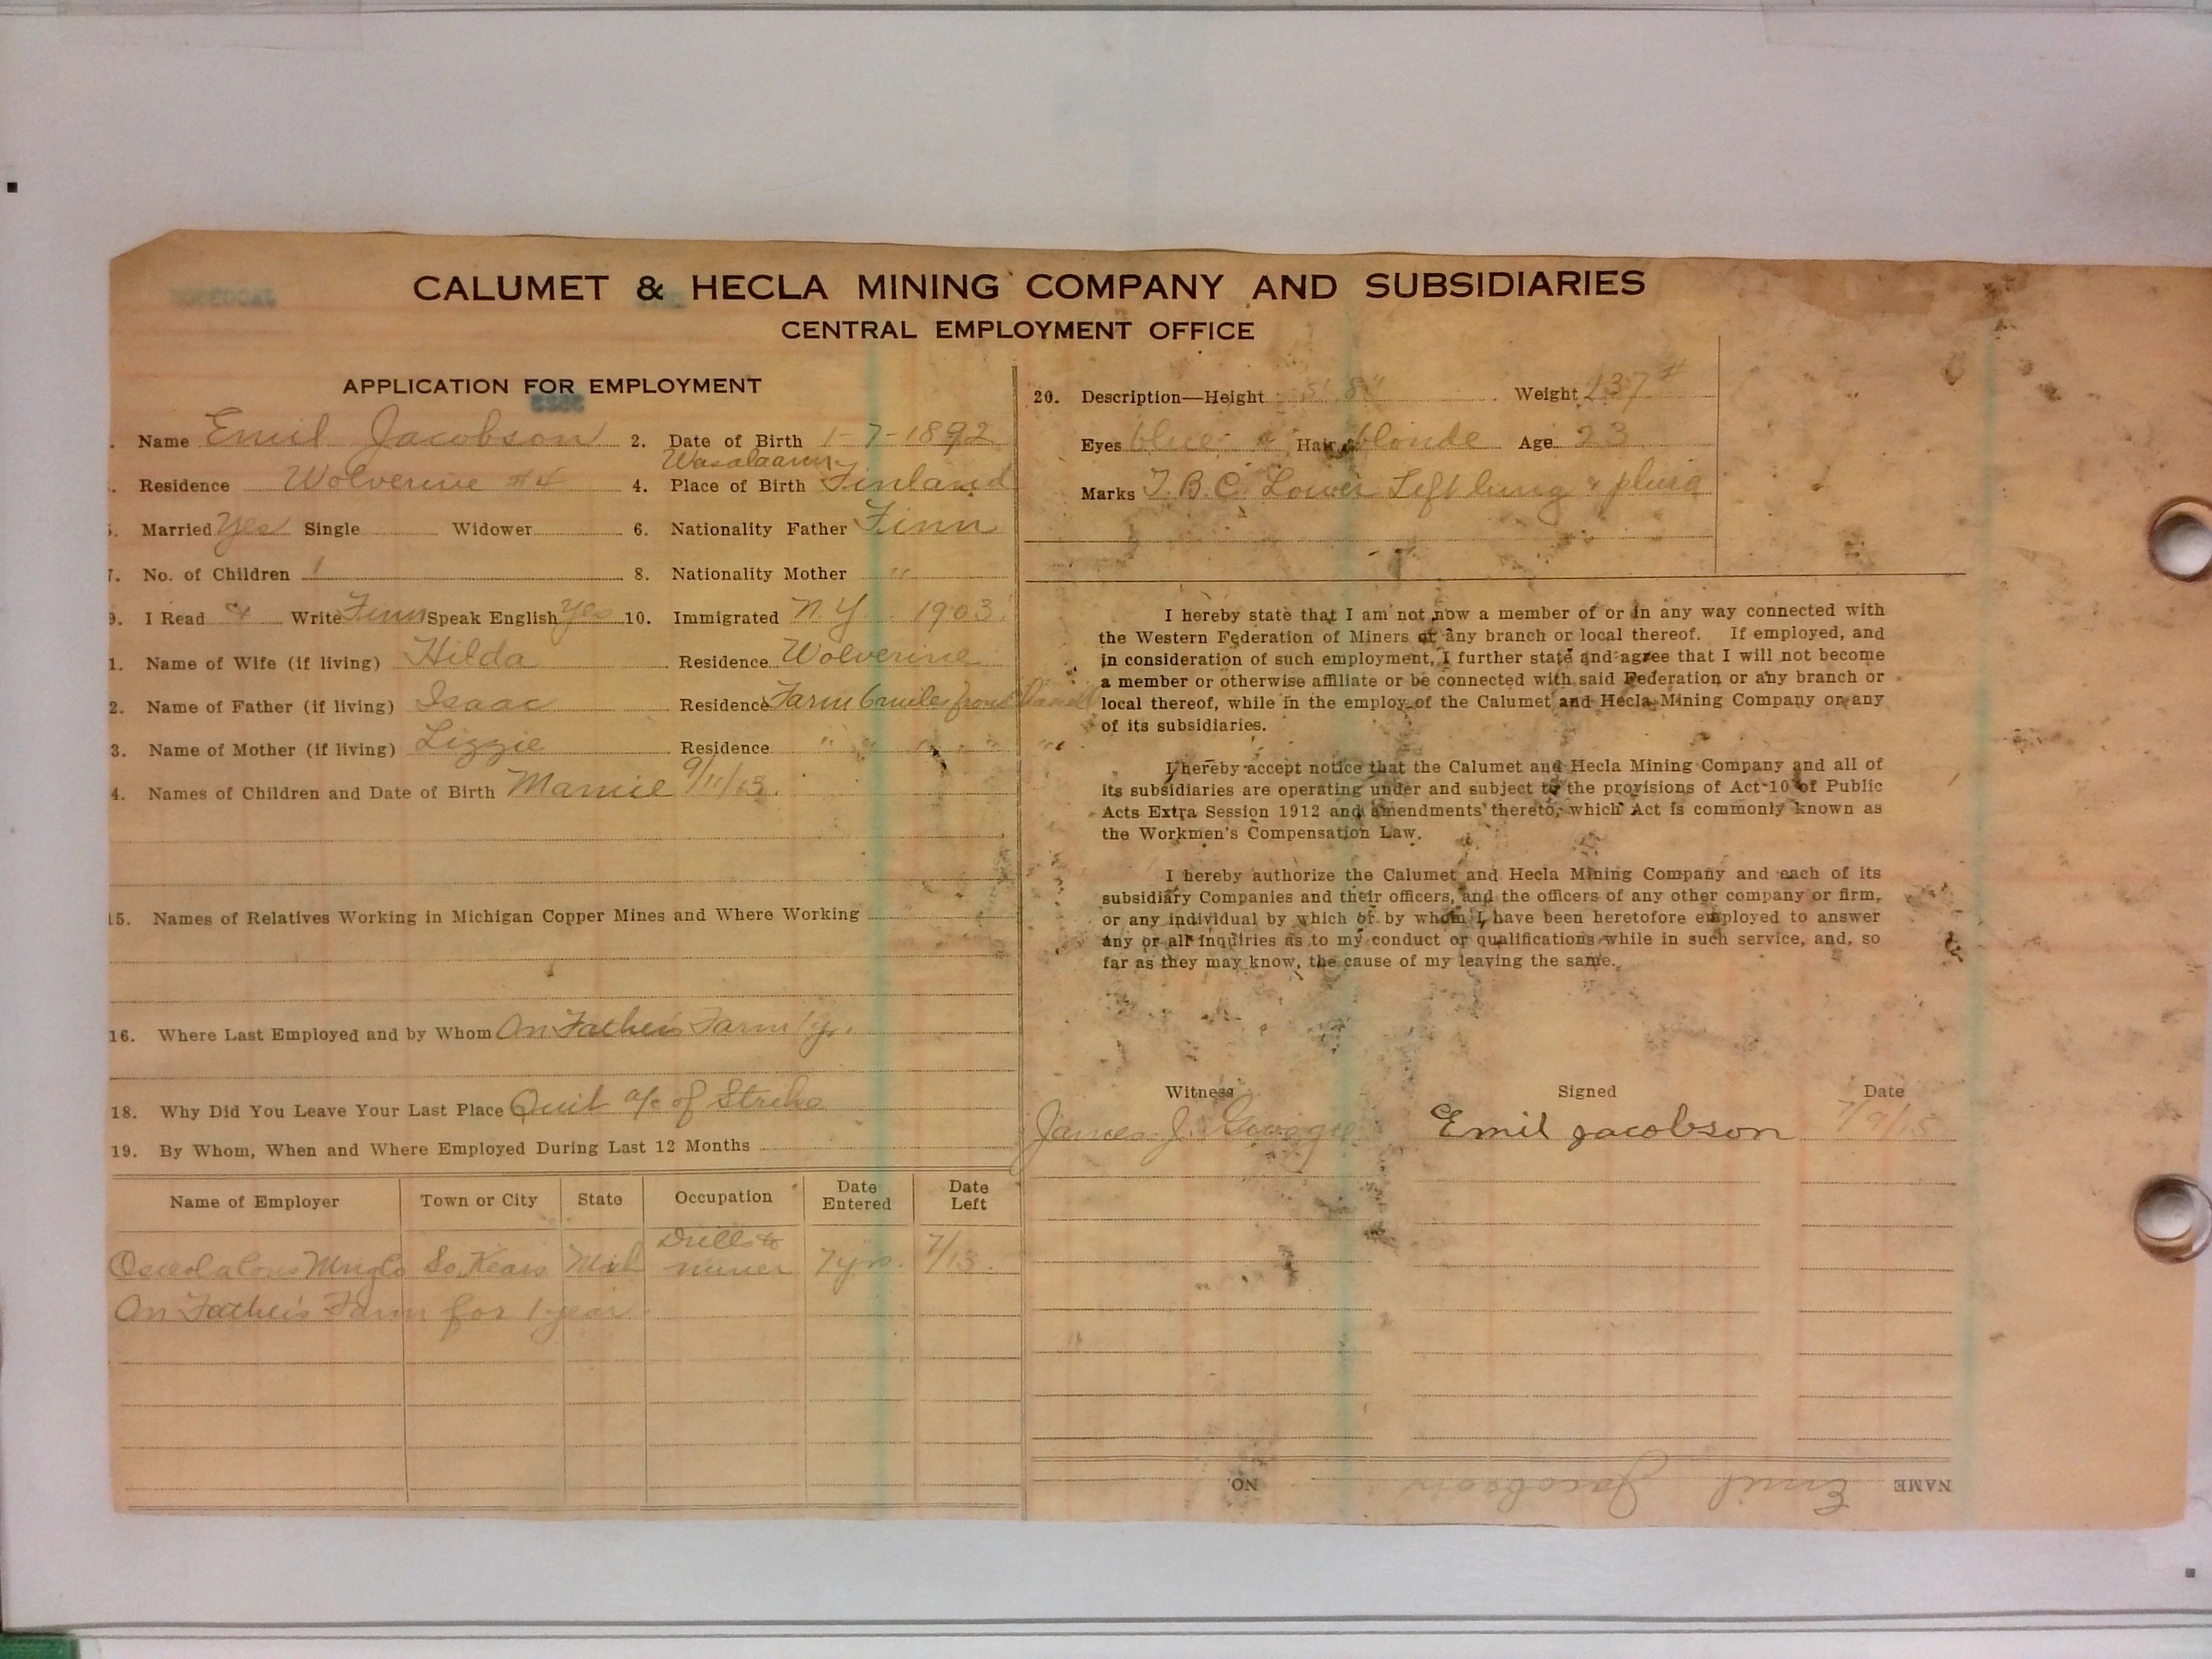 CALUMET & HECLA MINING COMPANY AND SUBSIDIARIES
CENTRAL EMPLOYMENT OFFICE
APPLICATION FOR EMPLOYMENT
. Name Emil Jacobson 2. Date of Birth 1-7-1892
. Residence Wolverine #4 4. Place of Birth Finland
5. Married Yes Single Widower 6. Nationality Father Finn
7. No. of Children 1 8. Nationality Mother "
9. I Read & Write Finn Speak English Yes 10. Immigrated N.Y. 1903
1. Name of Wife (if living) Hilda Residence Wolverine
2. Name of Father (if living) Isaac Residence Farm 6 miles from
3. Name of Mother (if living) Lizzie Residence " " " " "
4. Names of Children and Date of Birth Mamie 9/11/13.
15. Names of Relatives Working in Michigan Copper Mines and Where Working
16. Where Last Employed and by Whom On Father's Farm 1 y.
18. Why Did You Leave Your Last Place Quit a/c of Strike
19. By Whom, When and Where Employed During Last 12 Months
Name of Employer Town or City State Occupation Date Entered Date Left
Osceola Cons Mng Co So. Kears Mich miner 7 yrs. 7/13.
On Father's Farm for 1 year
20. Description—Height 5' 8" Weight 137 #
Eyes blue Hair blonde Age 23
Marks T.B.C. Lower Left lung & plura
I hereby state that I am not now a member of or in any way connected with
the Western Federation of Miners or any branch or local thereof. If employed, and
in consideration of such employment, I further state and agree that I will not become
a member or otherwise affiliate or be connected with said Federation or any branch or
local thereof, while in the employ of the Calumet and Hecla Mining Company or any
of its subsidiaries.
I hereby accept notice that the Calumet and Hecla Mining Company and all of
its subsidiaries are operating under and subject to the provisions of Act 10 of Public
Acts Extra Session 1912 and amendments thereto, which Act is commonly known as
the Workmen's Compensation Law.
I hereby authorize the Calumet and Hecla Mining Company and each of its
subsidiary Companies and their officers, and the officers of any other company or firm,
or any individual by which or by whom I have been heretofore employed to answer
any or all inquiries as to my conduct or qualifications while in such service, and, so
far as they may know, the cause of my leaving the same.
Witness Signed Date
James J. Emil Jacobson 7/9/15
NAME Emil Jacobson NO.